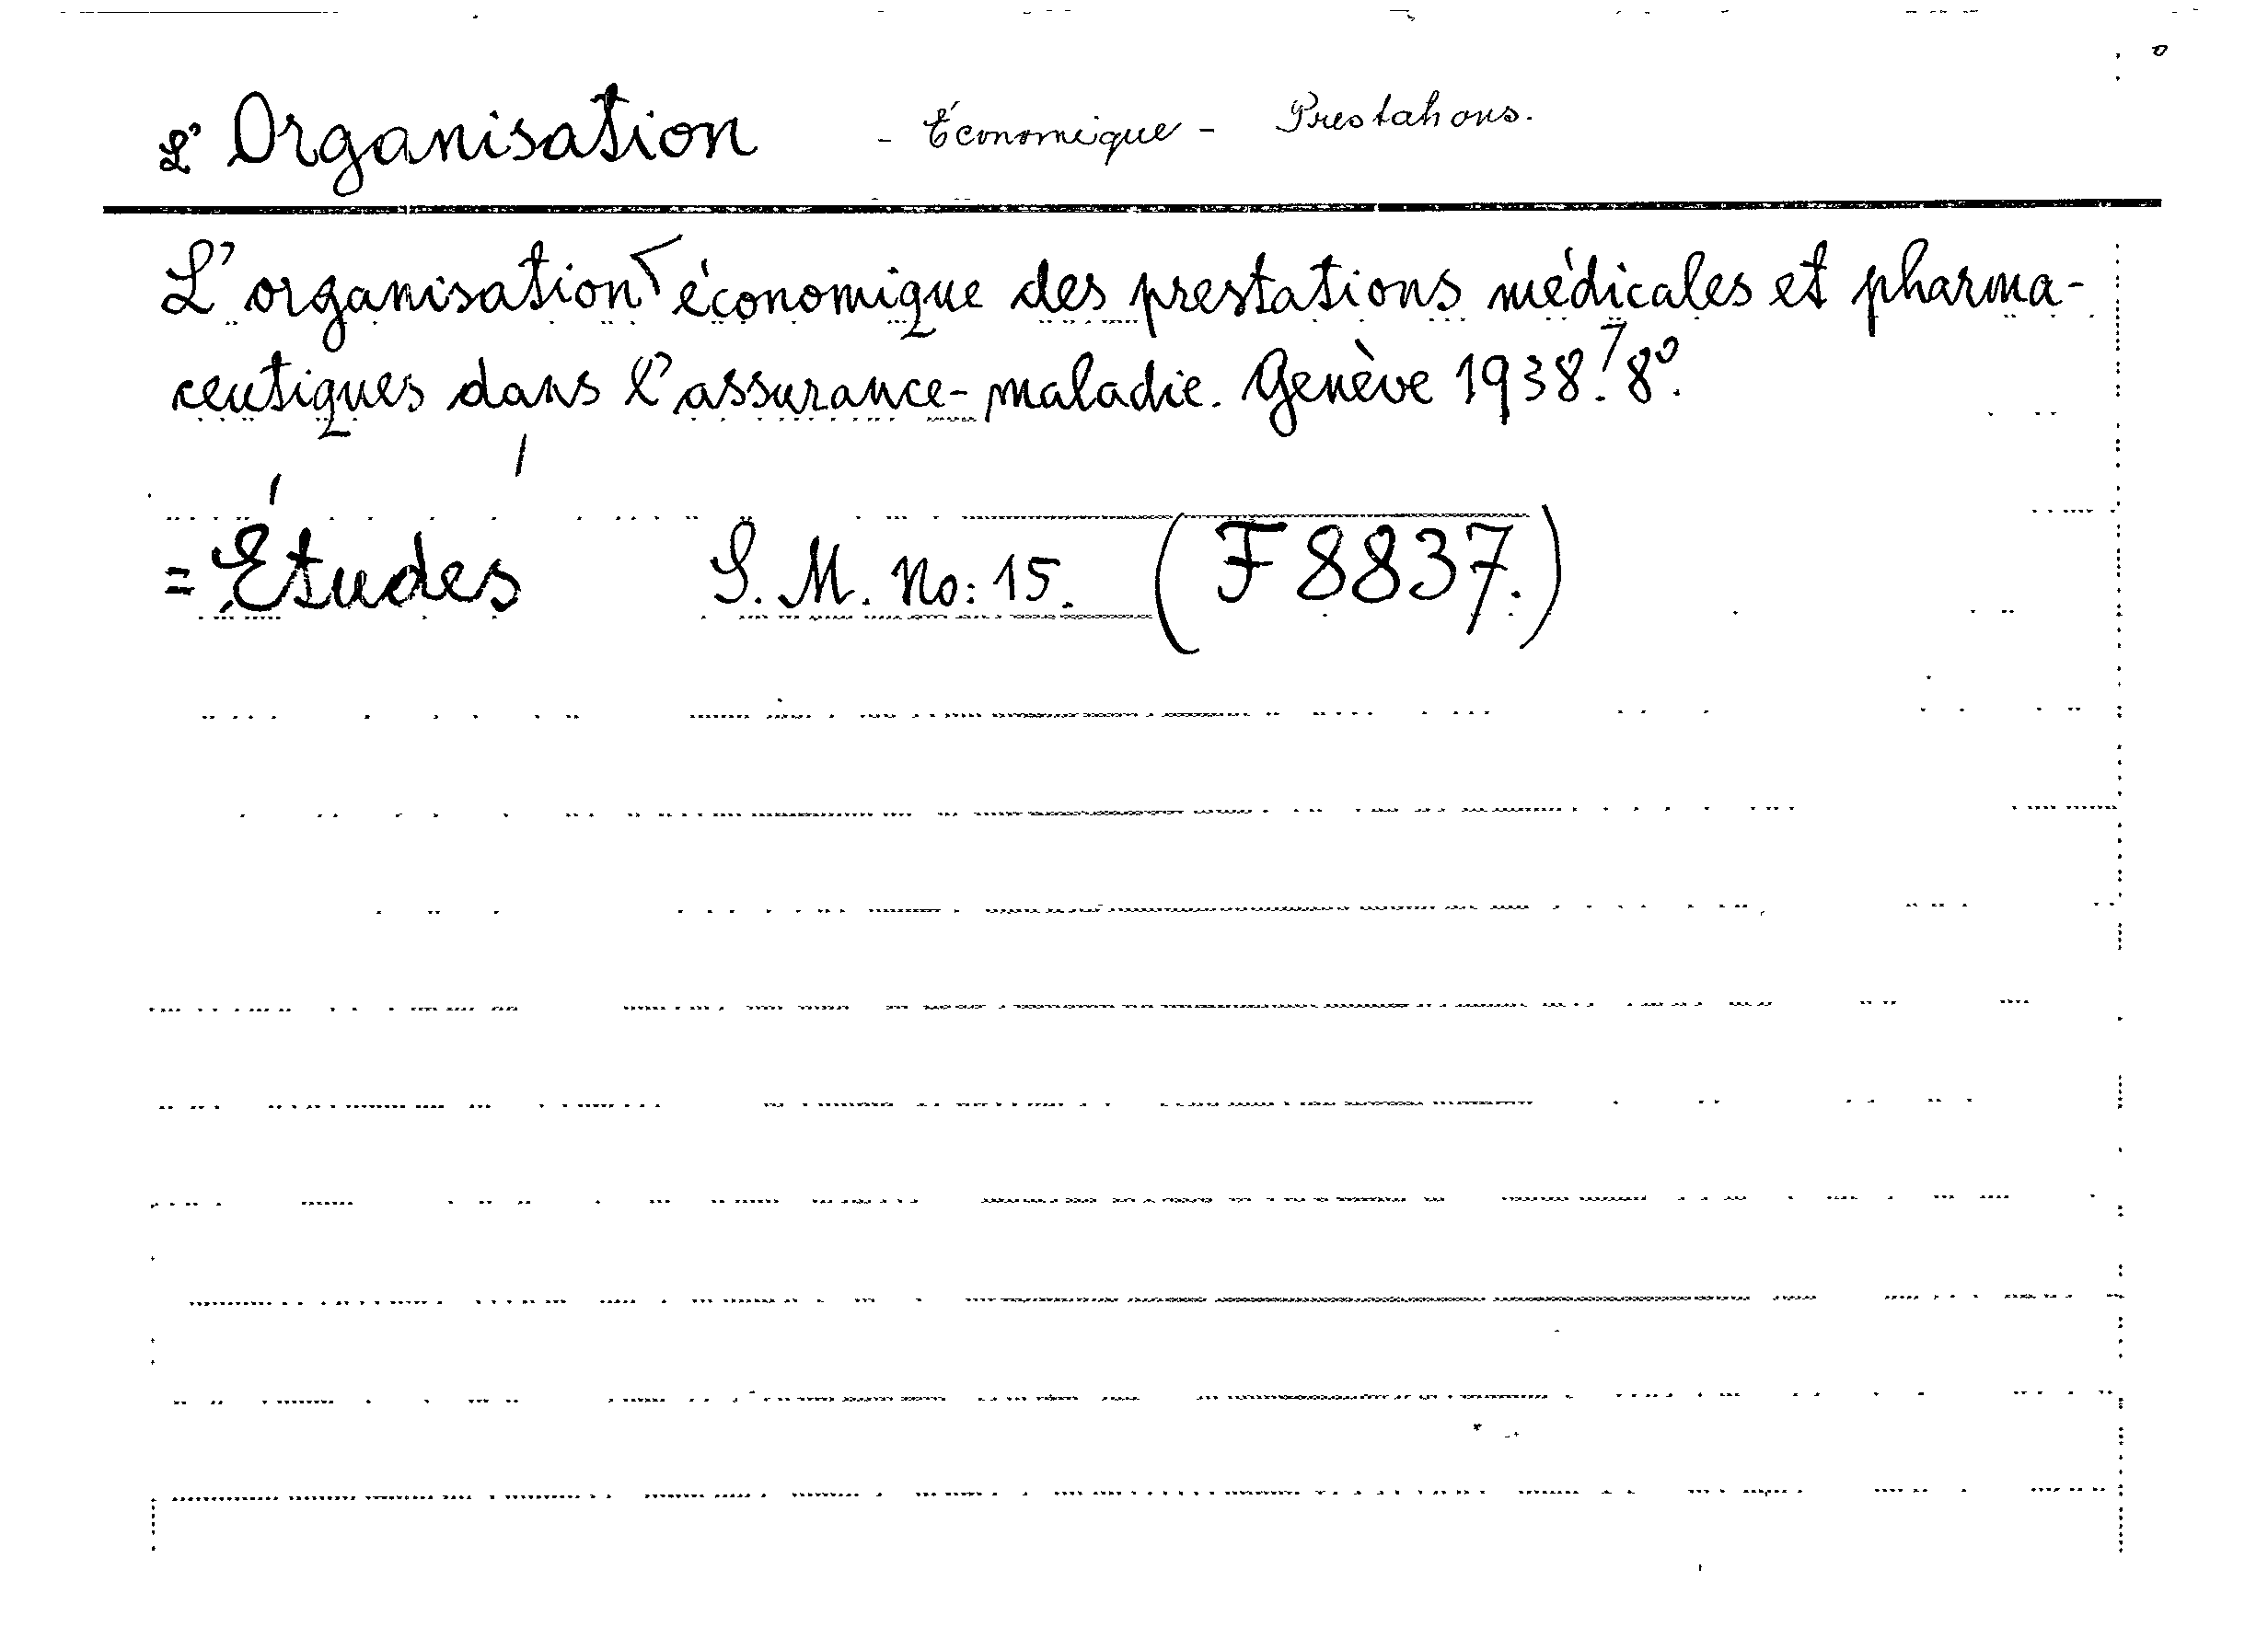 L' Organisation - Économique - Prestations.
L'organisation économique des prestations médicales et pharma-
ceutiques dans l'assurance-maladie. Genève 1938. 8º.
= Études S. M. No: 15. (F 8837.)